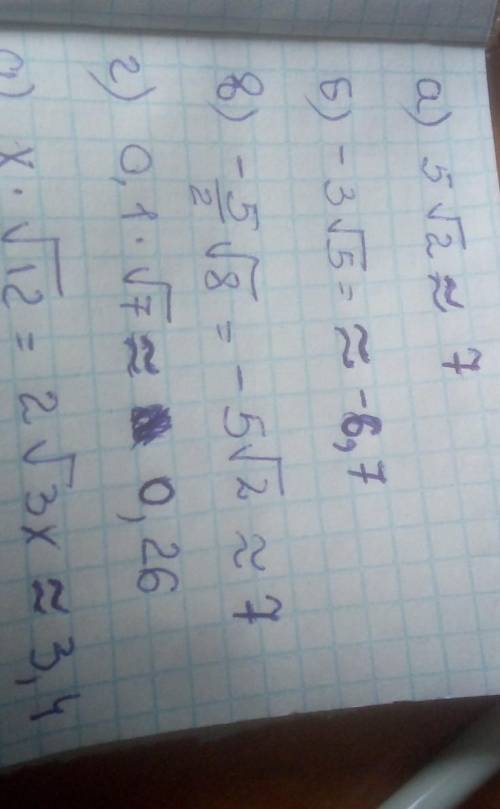 а) 5√2 ≈ 7
б) -3√5 = ≈ -6,7
в) -5/2 √8 = -5√2 ≈ 7
г) 0,1·√7 ≈ 0,26
д) х·√12 = 2√3х ≈ 3,4